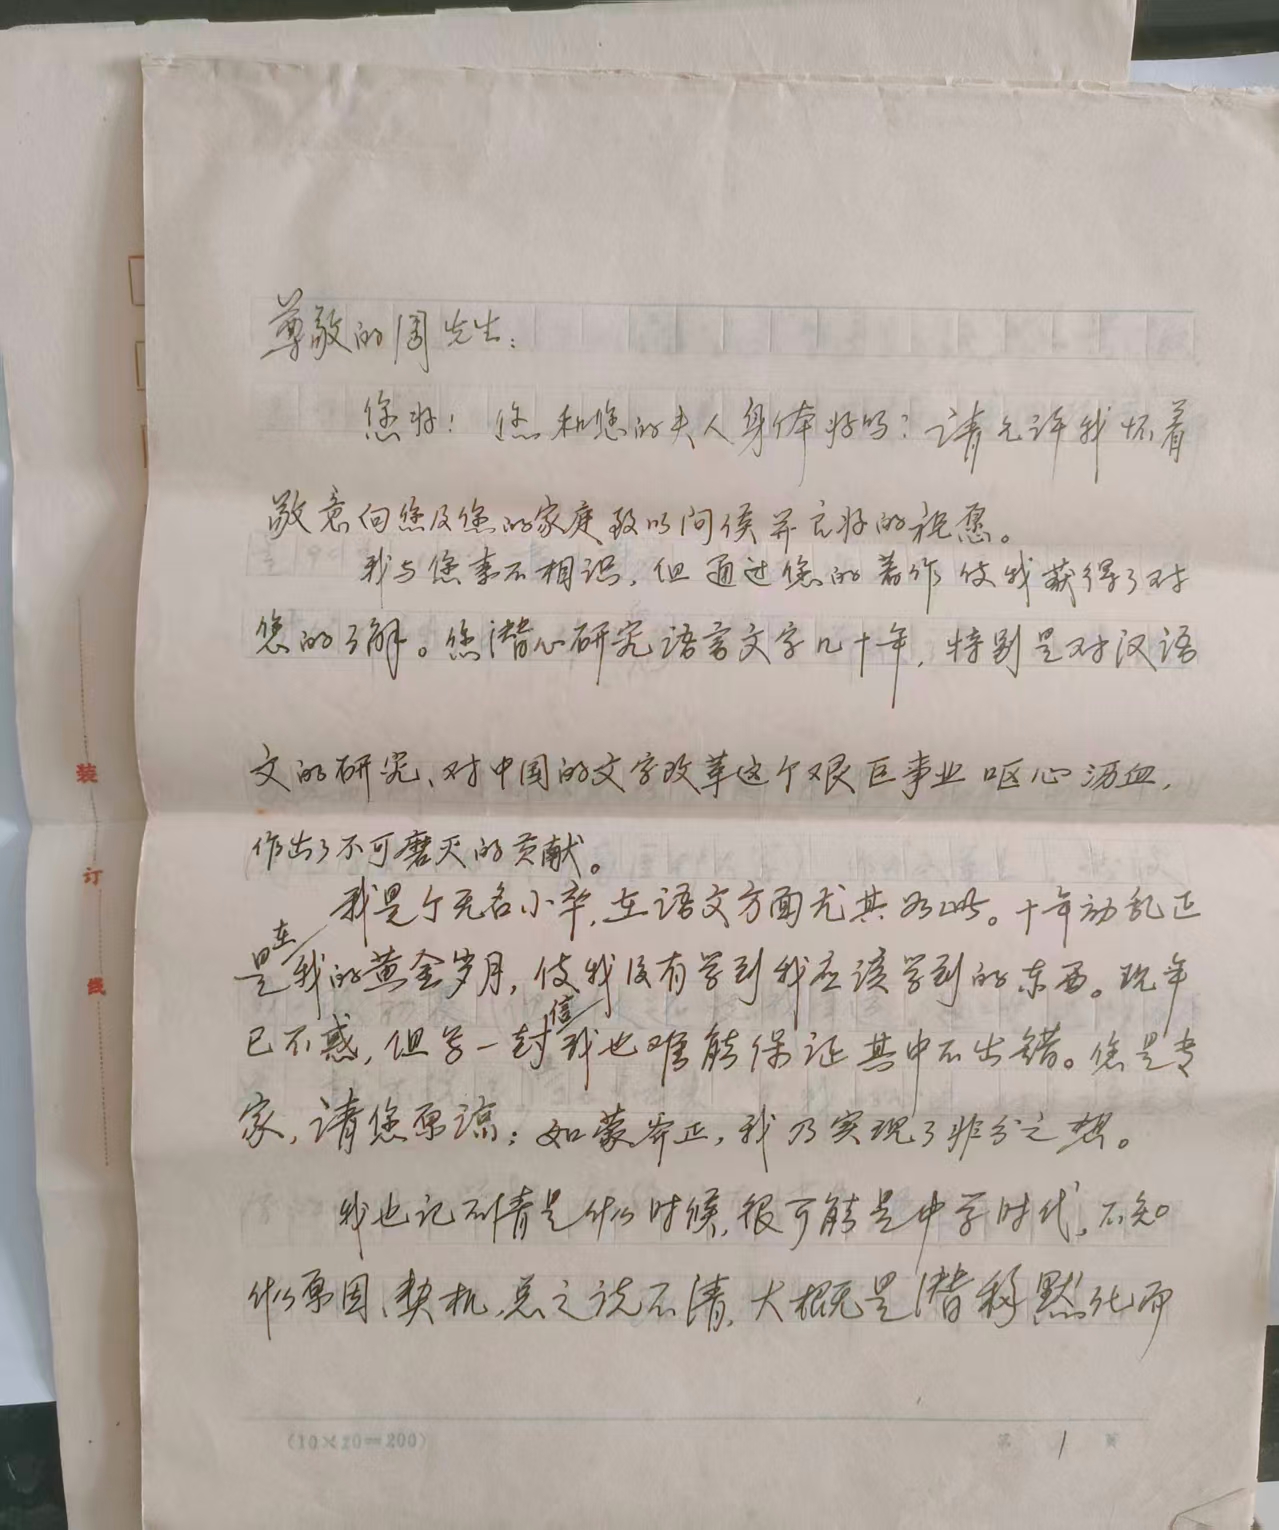 尊敬的周先生：
您好！您和您的夫人身体好吗？请允许我怀着
敬意向您及您的家庭致以问侯并良好的祝愿。
我与您素不相识，但通过您的著作使我获得了对
您的了解。您潜心研究语言文字几十年，特别是对汉语
文的研究、对中国的文字改革这个艰巨事业呕心沥血，
作出了不可磨灭的贡献。
我是个无名小卒，在语文方面尤其如此。十年动乱正
是在我的黄金岁月，使我没有学到我应该学到的东西。现年
已不惑，但写一封信我也难能保证其中不出错。您是专
家，请您原谅；如蒙斧正，我乃实现了非分之想。
我也记不清是什么时候，很可能是中学时代，不知
什么原因、契机，总之说不清，大概是潜移默化而
(10×20=200)
1
装
订
线